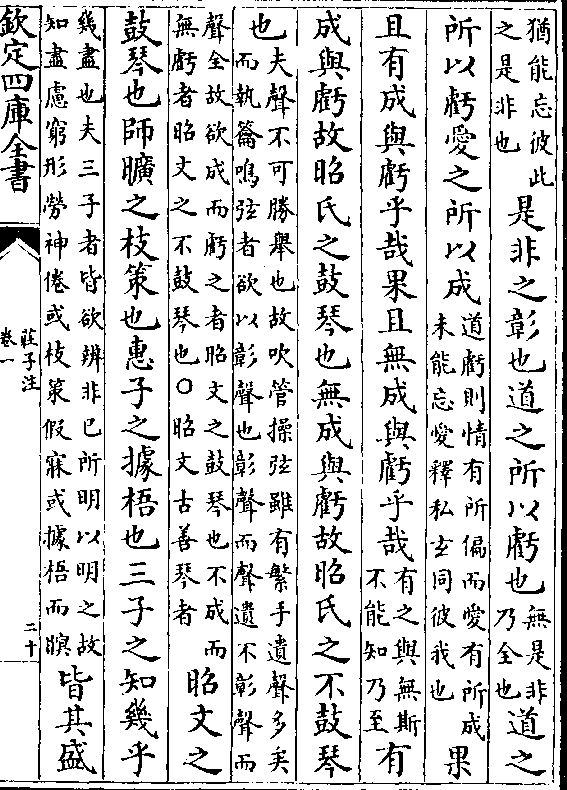 猶能忘彼此
之是非也
是非之彰也道之所以虧也
無是非
乃全也
道之
所以虧愛之所以成
道虧則情有所偏而愛有所成
未能忘愛釋私玄同彼我也
果
且有成與虧乎哉果且無成與虧乎哉
有之與無斯
不能知乃至
有
成與虧故昭氏之鼓琴也無成與虧故昭氏之不鼓琴
也
夫聲不可勝舉也故吹管操弦雖有繁手遺聲多矣
而執籥鳴弦者欲以彰聲也彰聲而聲遺不彰聲而
聲全故欲成而虧之者昭文之鼓琴也不成而
無虧者昭文之不鼓琴也○昭文古善琴者
昭文之
鼓琴也師曠之枝策也惠子之據梧也三子之知幾乎
幾盡也夫三子者皆欲辨非己所明以明之故
知盡慮窮形勞神倦或枝策假寐或據梧而瞑
皆其盛
欽定四庫全書
莊子注
卷一
二十